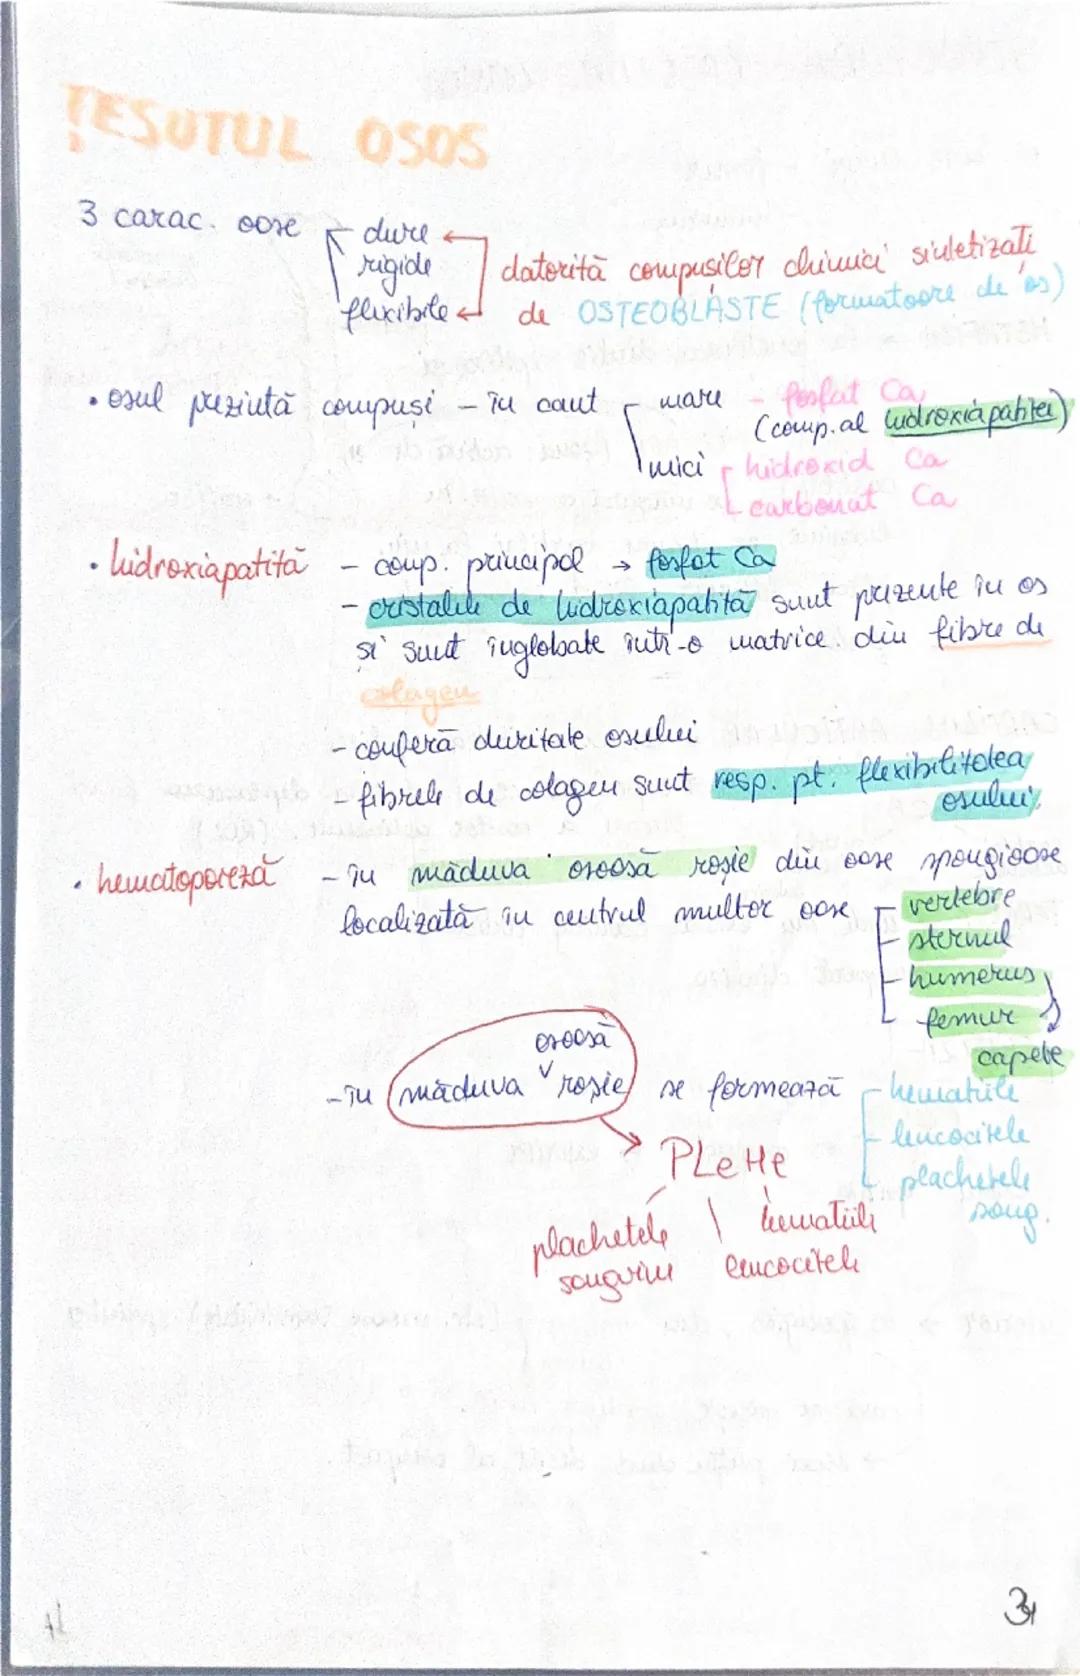 ȚESUTUL OSOS
3 carac. oase - dure
rigide
flexibile
datorită compușilor chimici sintetizați
de OSTEOBLASTE (formatoare de os)
• osul prezintă compuși - în cant mare - fosfat Ca
(comp. al hidroxiapatitei)
mici - hidroxid Ca
carbonat Ca
• hidroxiapatită - comp. principal → fosfat Ca
- cristalele de hidroxiapatită sunt prezente în os
și sunt înglobate într-o matrice din fibre de
colagen
- conferă duritate osului
- fibrele de colagen sunt resp. pt. flexibilitatea
osului.
• hematopoeză - în măduva osoasă roșie din oase spongioase
localizată în centrul multor oase - vertebre
- sternul
- humerus
- femur
capete
osoasă
- în măduva ˅ roșie se formează - hematiile
- leucocitele
- plachetele
sang.
PLeHe
plachetele sangvine
leucocitele
hematiile
34